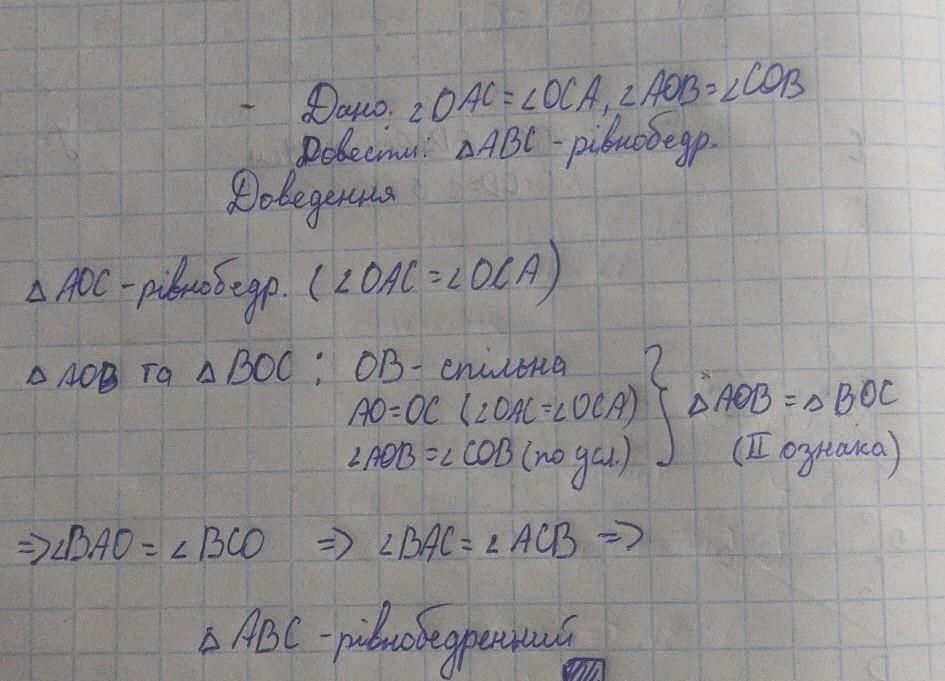 - Дано: ∠OAC = ∠OCA, ∠AOB = ∠COB
Довести: △ABC - рівнобедр.
Доведення
△ AOC - рівнобедр. (∠OAC = ∠OCA)
△ AOB та △ BOC : OB - спільна
AO = OC (∠OAC = ∠OCA)
∠AOB = ∠COB (по усл.)
△AOB = △ BOC
(II ознака)
=> ∠BAO = ∠BCO => ∠BAC = ∠ACB =>
△ ABC - рівнобедренний